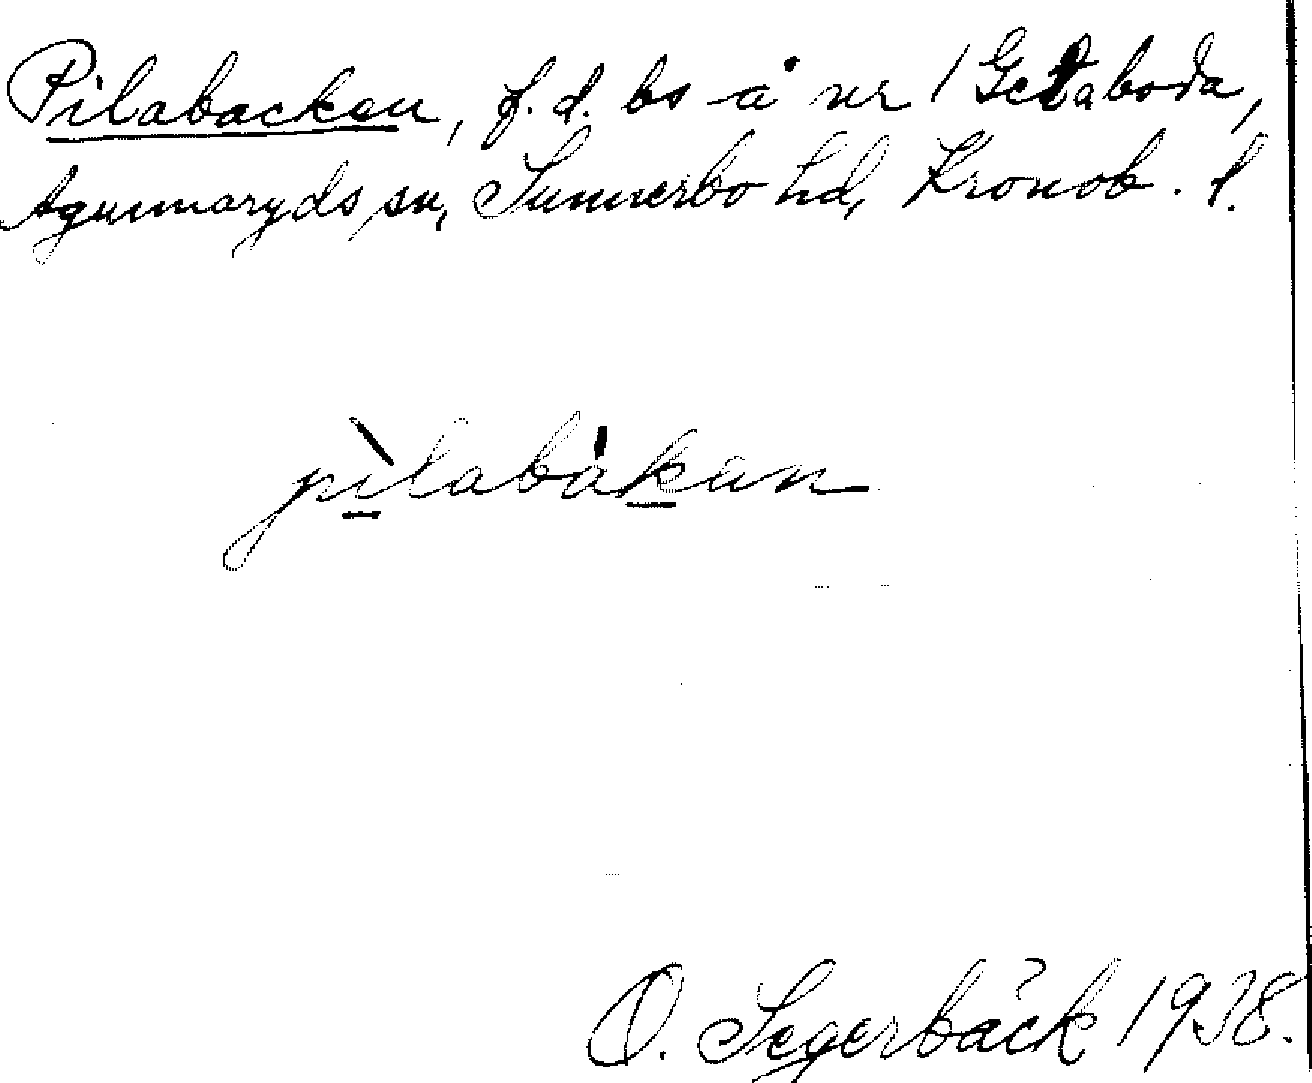 Pilabacken, f.d. bs å nr 1 Getaboda,
Agunnaryds sn, Sunnerbo hd, Kronob. l.
pìlabákan
O. Segerbäck 1938.